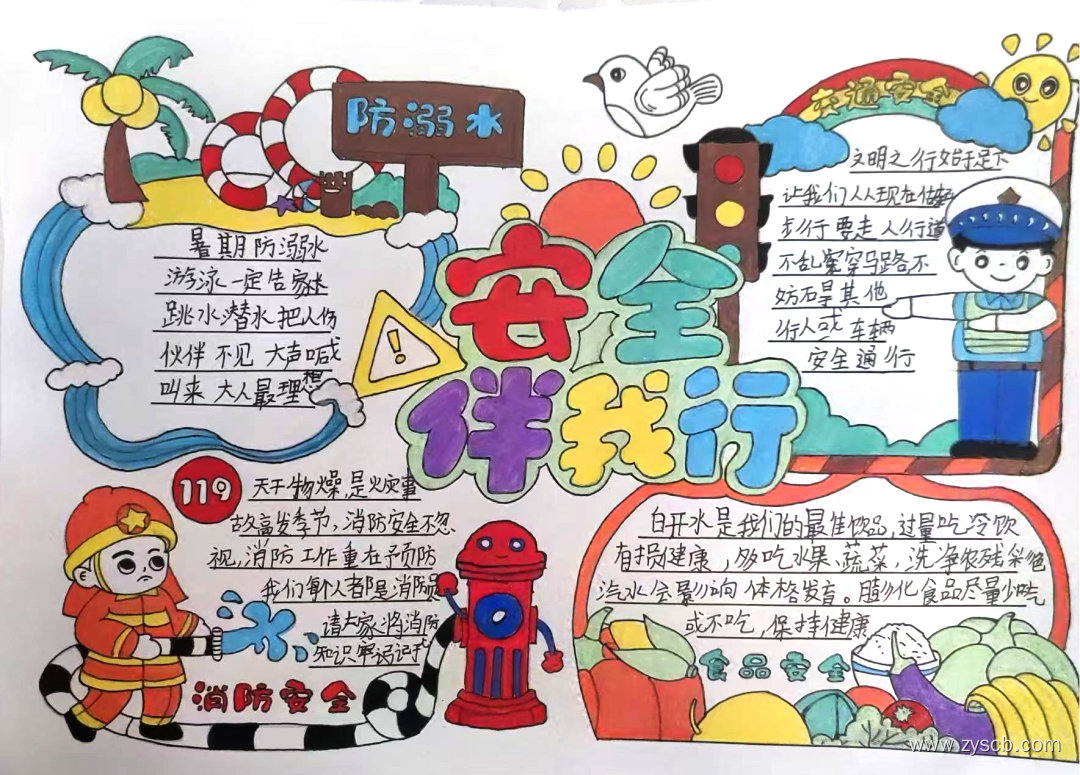 防溺水
暑期防溺水
游泳一定告家长
跳水潜水把人伤
伙伴不见大声喊
叫来大人最理想
安全
伴我行
交通安全
文明之行始于足下
让我们人人现在做起
步行要走人行道
不乱穿马路不
妨碍其他
行人或车辆
安全通行
119
天干物燥,是火灾事
故高发季节,消防安全不忽
视,消防工作重在预防
我们每个人都是消防员
请大家将消防
知识牢记
消防安全
白开水是我们的最佳饮品,过量吃冷饮
有损健康,多吃水果、蔬菜,洗净农残彩色
汽水会影响体格发育。膨化食品尽量少吃
或不吃,保持健康
食品安全
www.zyscb.com